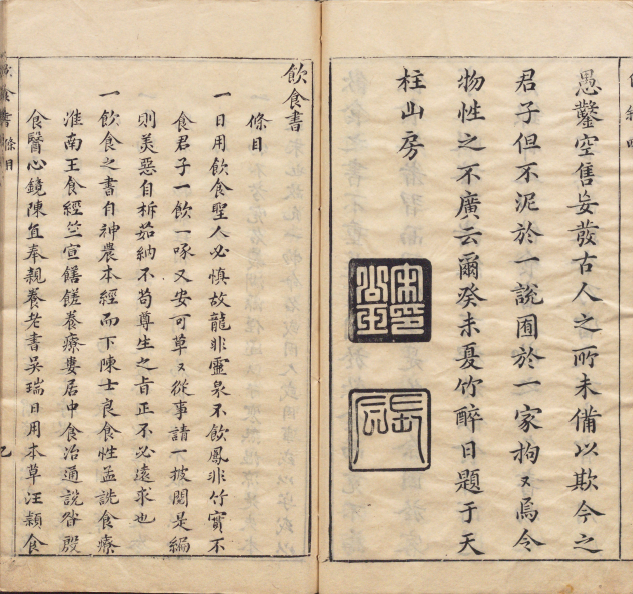 愚鑿空售妄發古人之所未備以欺今之
君子但不泥於一說囿於一家拘〻焉令
物性之不廣云爾癸未夏竹醉日題于天
柱山房
飲食書
條目
一日用飲食聖人必慎故龍非靈泉不飲鳳非竹實不
食君子一飲一啄又安可草〻從事請一披閱是編
則美惡自析茹納不苟尊生之旨正不必遠求也
一飲食之書自神農本經而下陳士良食性孟詵食療
淮南王食經竺宣饍饈養療婁居中食治通說咎殷
食醫心鏡陳直奉親養老書吳瑞日用本草汪穎食
飲食書 條目